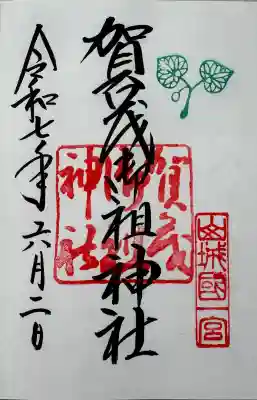 山城國一宮
賀茂御祖神社
賀茂
御祖
神社
令和七年六月二日